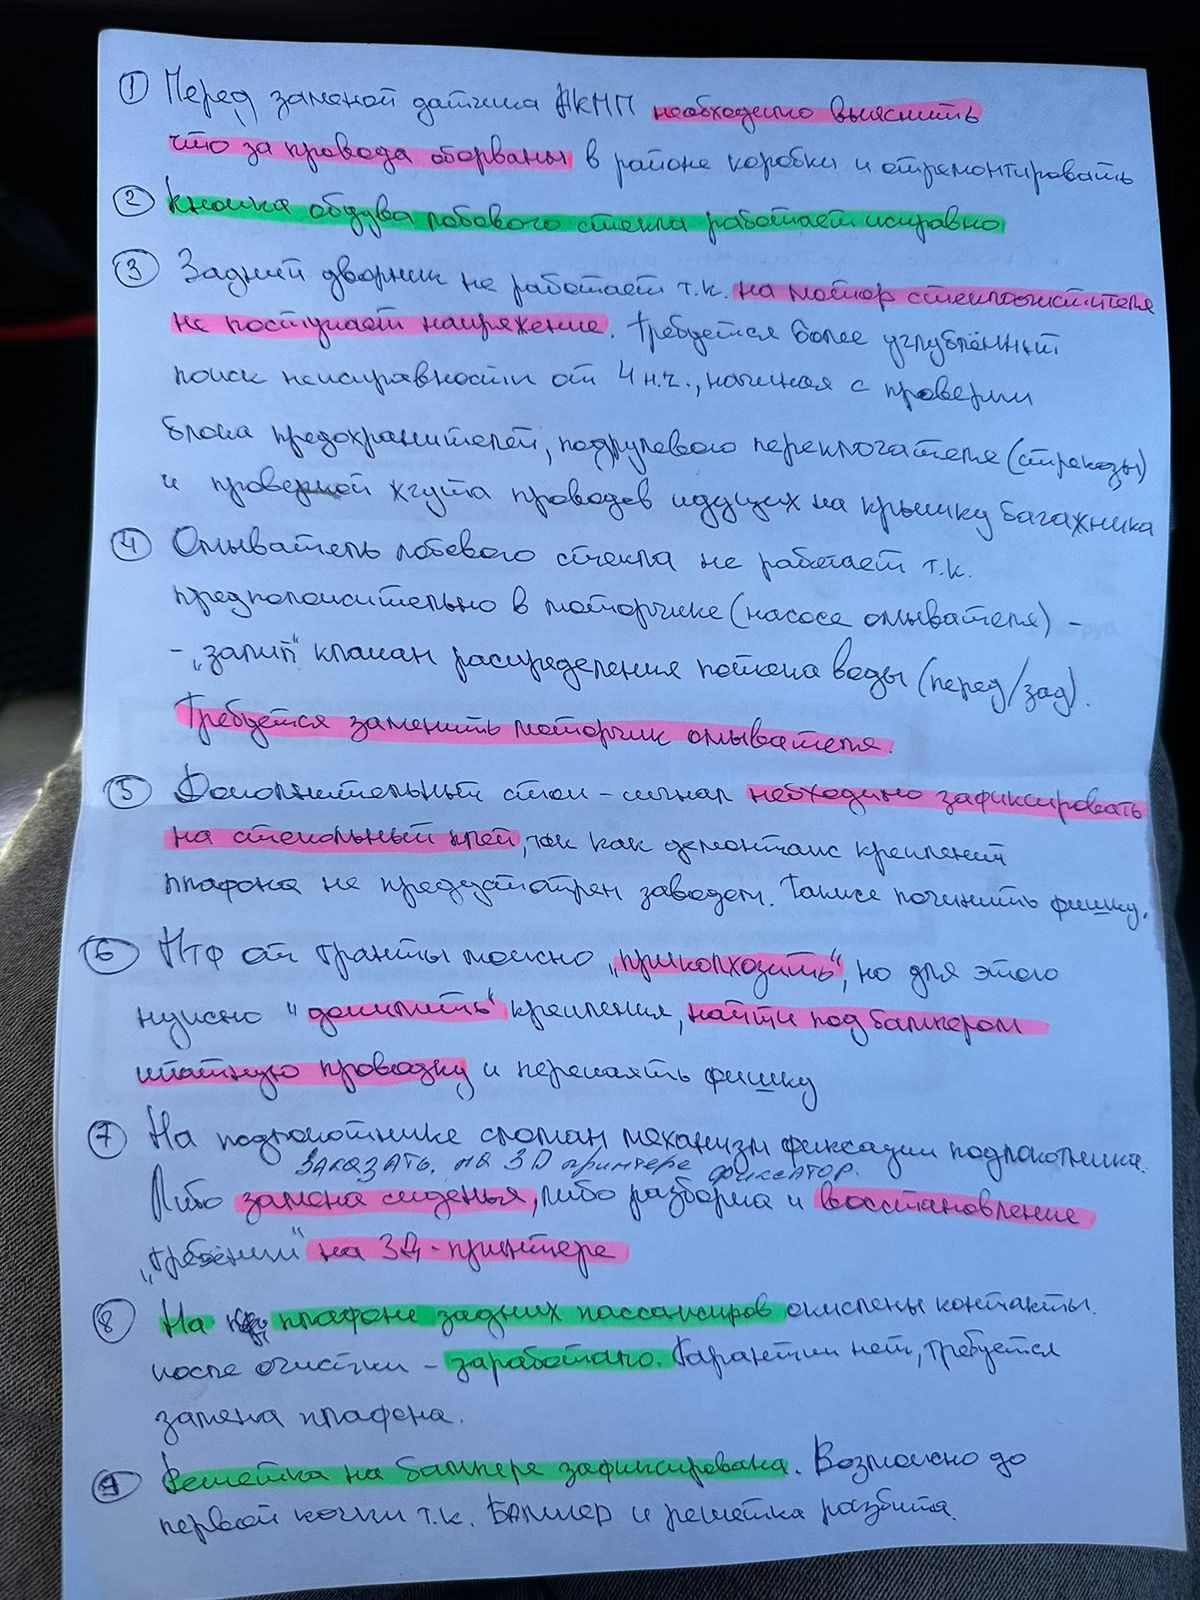 ① Перед заменой датчика АКПП необходимо выяснить
что за провода оборваны в районе коробки и отремонтировать
② Кнопка обдува лобового стекла работает исправно
③ Задний дворник не работает т.к. на мотор стеклоочистителя
не поступает напряжение. Требуется более углублённый
поиск неисправности от 4 н.ч., начиная с проверки
блока предохранителей, подрулевого переключателя (стрекозы)
и проверкой жгута проводов идущих на крышку багажника
④ Омыватель лобового стекла не работает т.к.
предположительно в моторчике (насосе омывателя) -
- „залип" клапан распределения потока воды (перед/зад).
Требуется заменить моторчик омывателя.
⑤ Дополнительный стоп-сигнал необходимо зафиксировать
на стекольный клей, так как демонтаж креплений
плафона не предусмотрен заводом. Также починить фишку.
⑥ ПТФ от Гранты можно „приколхозить", но для этого
нужно "допилить" крепления, найти под бампером
штатную проводку и перепаять фишку
⑦ На подлокотнике сломан механизм фиксации подлокотника.
ЗАКАЗАТЬ. на 3D принтере фиксатор.
Либо замена сиденья, либо разборка и восстановление
„гребёнки" на 3Д-принтере
⑧ На плафоне задних пассажиров окислены контакты.
после очистки - заработало. Гарантии нет, требуется
замена плафона.
⑨ Решетка на бампере зафиксирована. Возможно до
первой кочки т.к. БАМПЕР и решетка разбита.